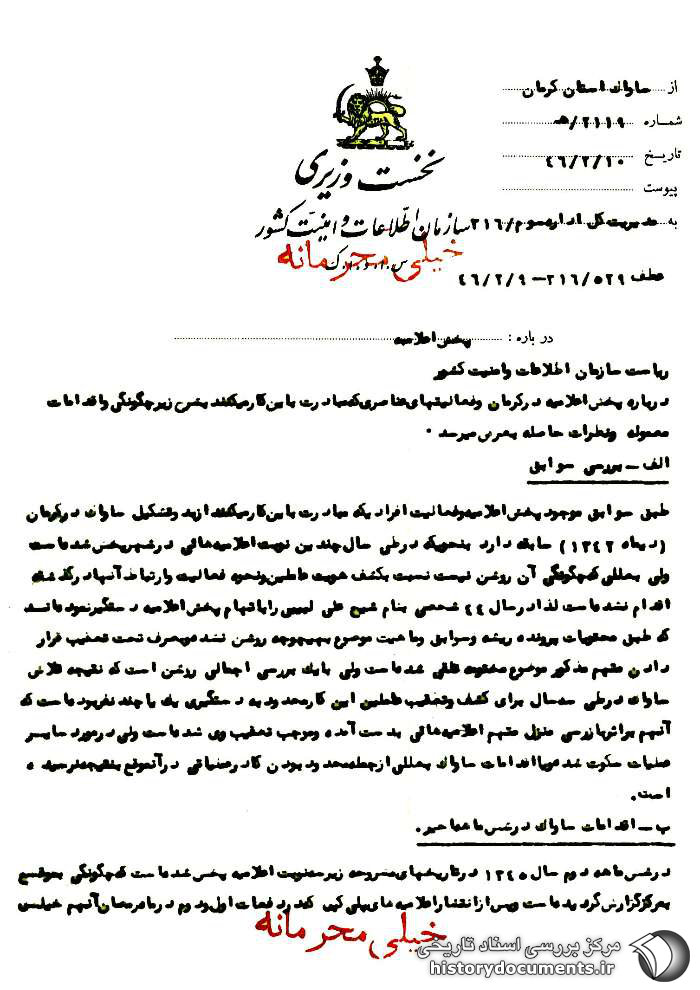 از ساواك استان كرمان
شماره ۲۱۱۹/هـ
تاریخ ۴۶/۲/۱۰
پیوست
به مدیریت کل اداره سوم/۳۱۶
نخست وزیری
سازمان اطلاعات و امنیت کشور
س.ا.و.ا.ک
خیلی محرمانه
عطف ۳۱۶/۵۲۹–۴۶/۲/۹
درباره : پخش اعلامیه
ریاست سازمان اطلاعات و امنیت کشور
درباره پخش اعلامیه در کرمان و فعالیتهای عناصری که مبادرت باین کار میکنند بشرح زیر چگونگی و اقدامات
معموله و نظرات حاصله بعرض میرسد.
الف – بررسی سوابق
طبق سوابق موجود پخش اعلامیه و فعالیت افرادیکه مبادرت باین کار میکنند از بدو تشکیل ساواک در کرمان
(دیماه ۱۳۴۲) سابقه دارد بنحویکه در طی سال چندین نوبت اعلامیه هائی در شهر پخش شده است
ولی بعللی که چگونگی آن روشن نیست نسبت بکشف هویت عاملین و نحوه فعالیت و ارتباط آنها در گذشته
اقدام نشده است لذا در سال ۴۴ شخصی بنام شیخ علی لبیبی را باتهام پخش اعلامیه دستگیر نموده اند
که طبق محتویات پرونده ریشه و سوابق و ماهیت موضوع بهیچوجه روشن نشده و بصرف تحت تعقیب قرار
دادن متهم مذکور موضوع مختومه تلقی شده است ولی با یک بررسی اجمالی روشن است که نتیجه تلاش
ساواک در طی سه سال برای کشف و تعقیب عاملین این کار محدود به دستگیری یک یا چند نفر بوده است که
آنهم بر اثر بازرسی منزل متهم اعلامیه هائی بدست آمده و موجب تعقیب وی شده است ولی در مورد سایر
عملیات سکوت شده و یا اقدامات ساواک بعللی از جمله محدود بودن کادر عملیاتی در آنموقع بنتیجه نرسیده
است.
ب – اقدامات ساواک در شش ماهه اخیر.
در شش ماهه دوم سال ۱۳۴۵ در تاریخهای مشروحه زیر سه نوبت اعلامیه پخش شده است که چگونگی بموقع
بمرکز گزارش گردیده است و پس از انتشار اعلامیه های پلی کپی شده در دفعات اول و دوم در ماه رمضان آنهم خیلی
خیلی محرمانه
مرکز بررسی اسناد تاریخی
historydocuments.ir